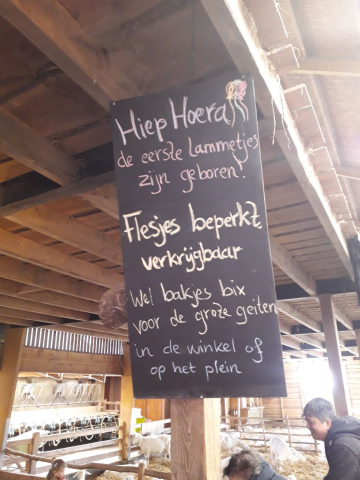 Hiep Hoera
de eerste Lammetjes
zijn geboren!
Flesjes beperkt
verkrijgbaar
Wel bakjes bix
voor de grote geiten
in de winkel of
op het plein